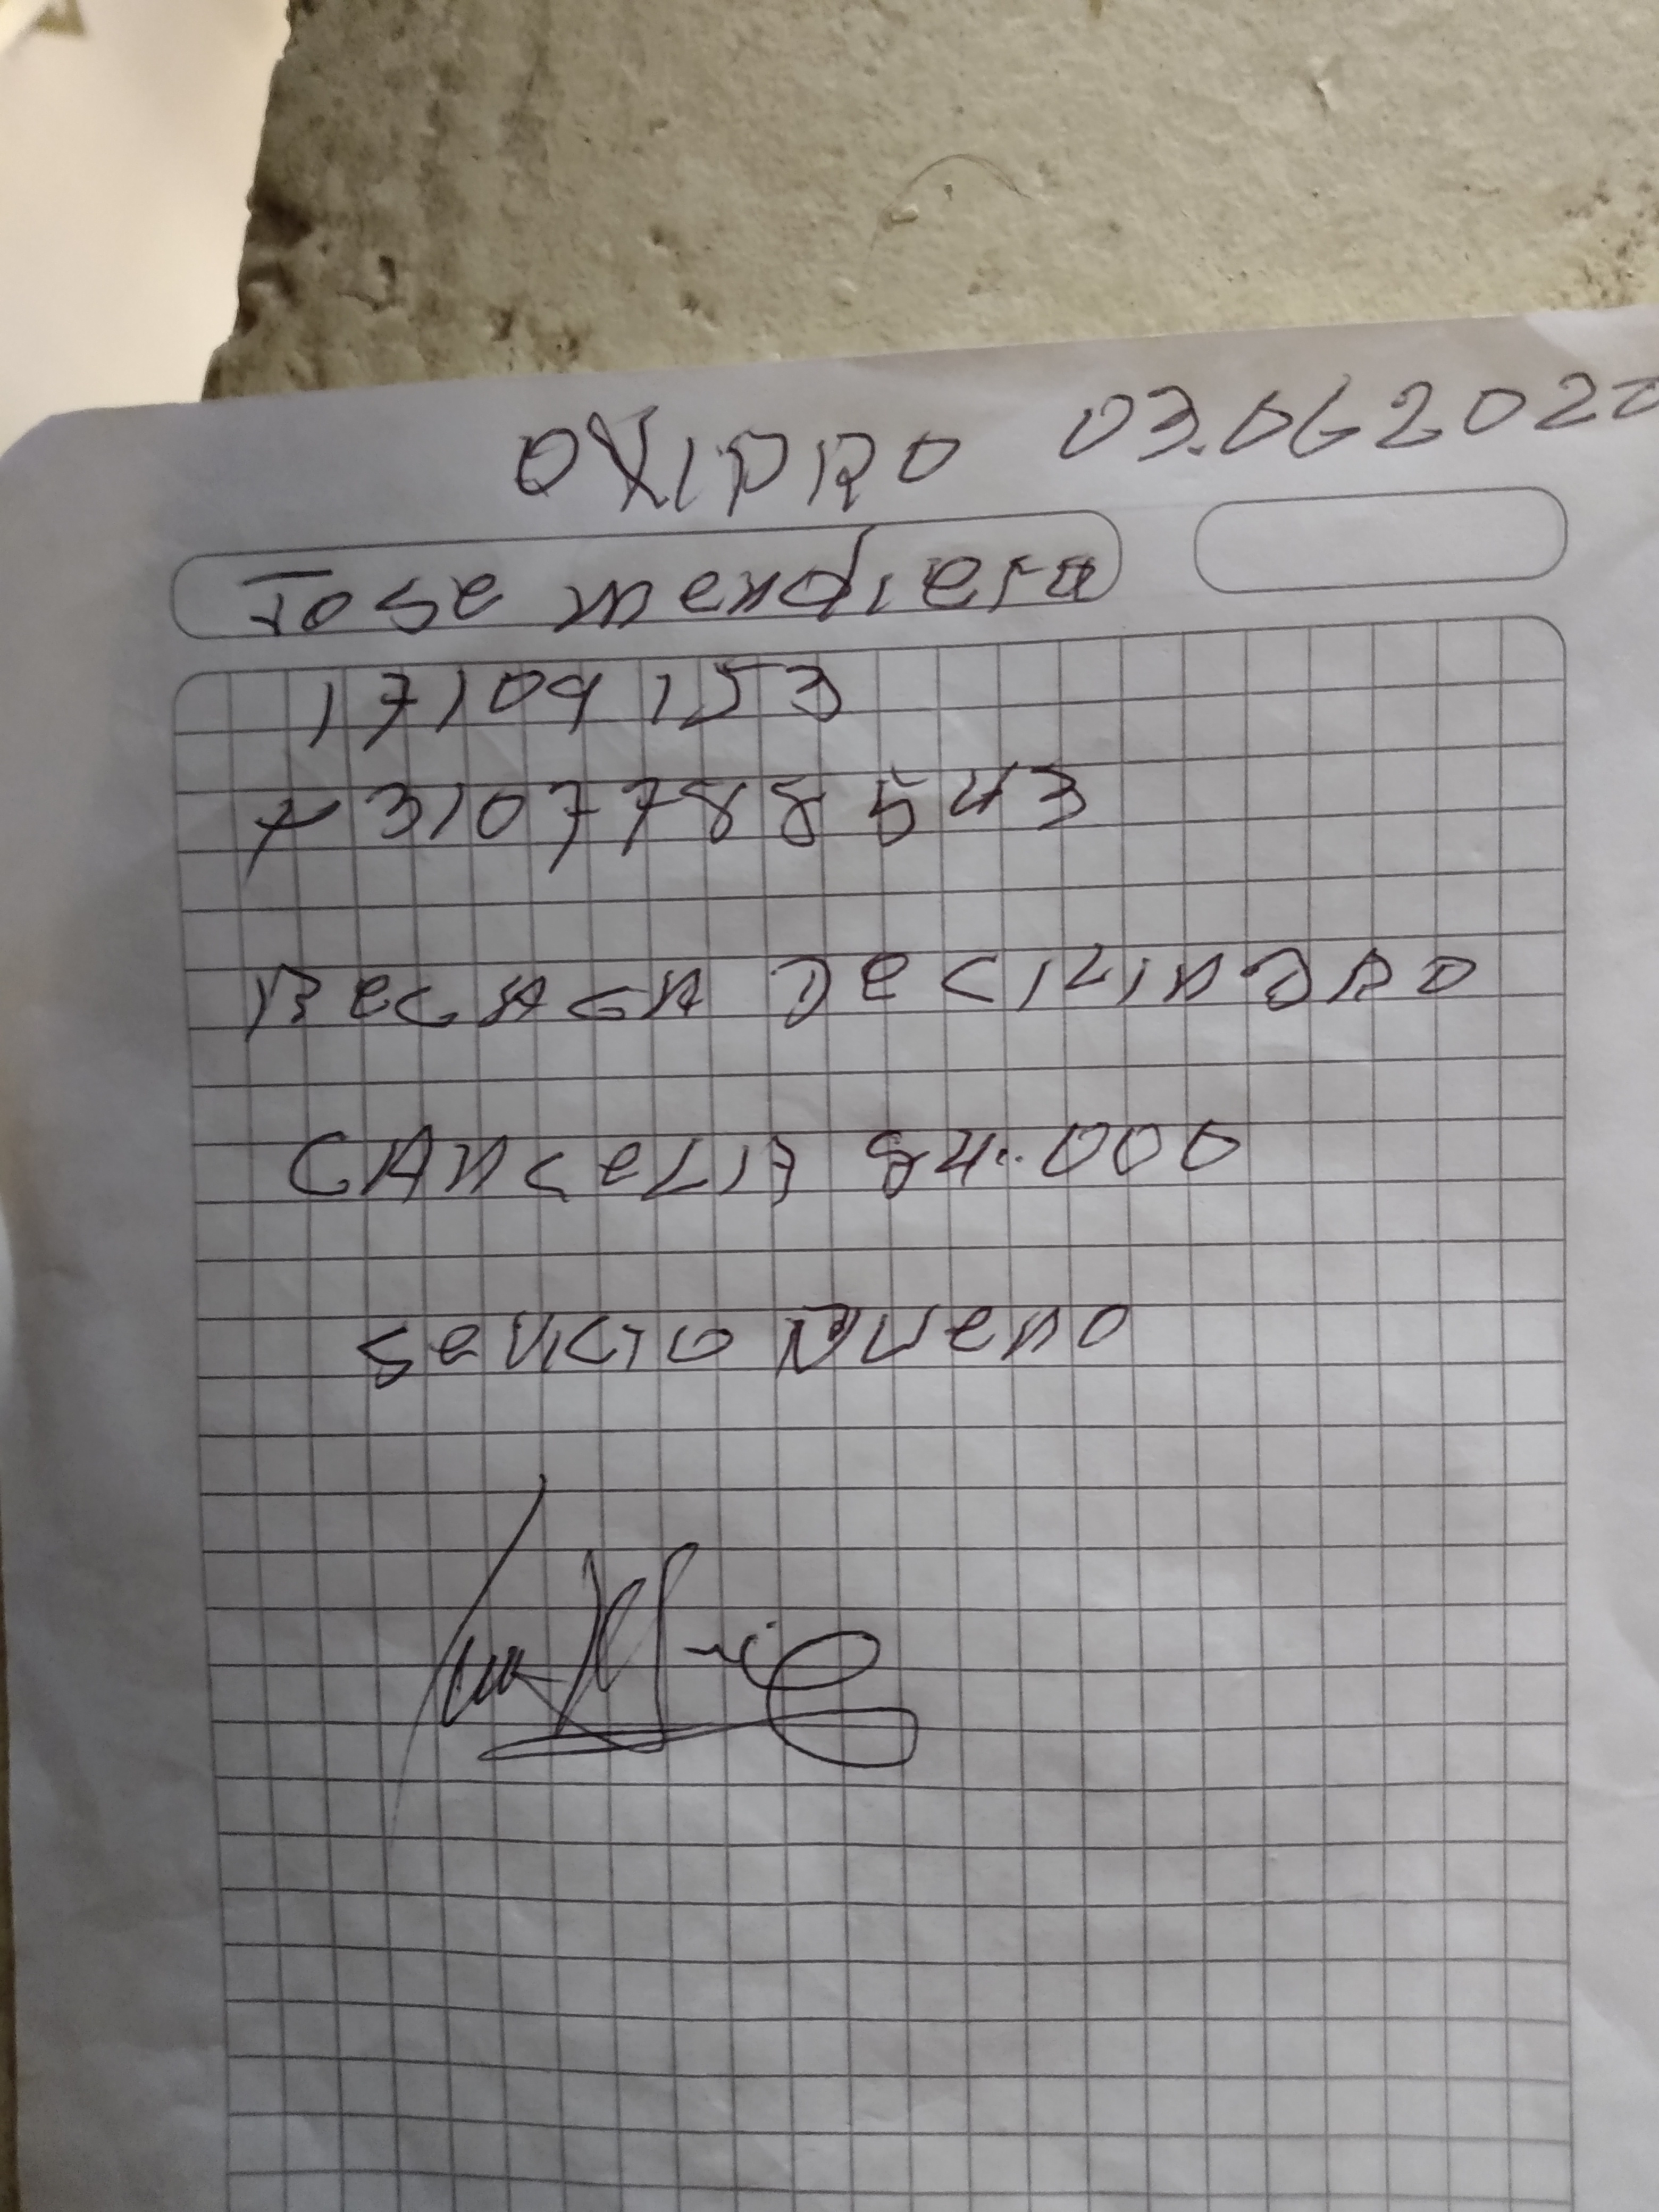 OXIPRO 03.06 202
Jose mendieta
17109153
x 3107788543
RECAGA DE CILINDRO
CANCELA 84.000
SEVICIO NUEVO